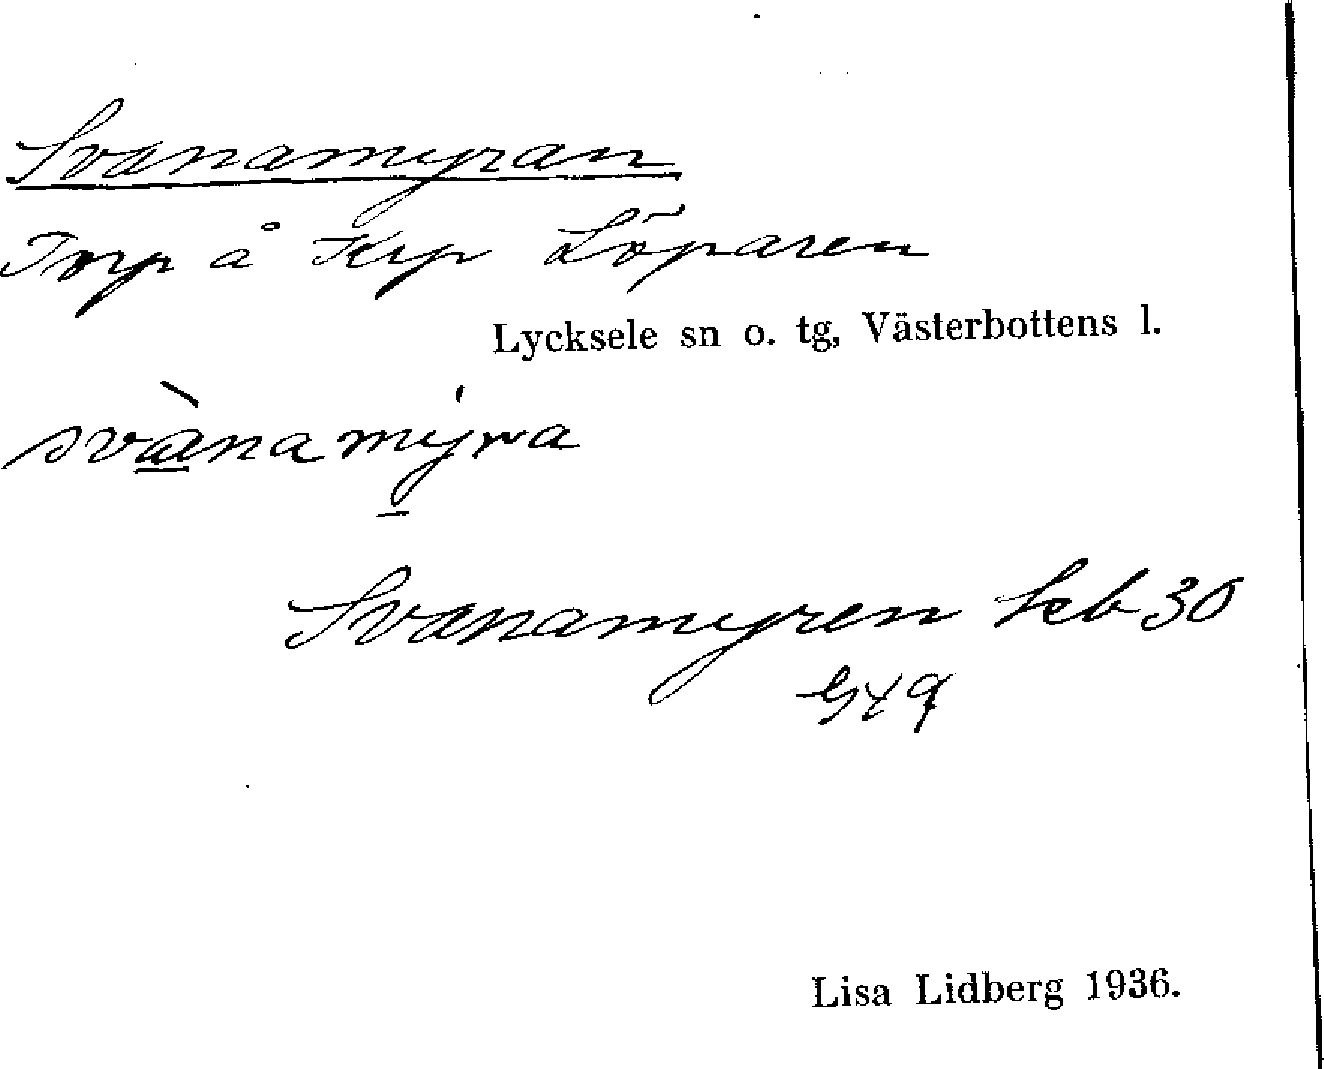 Svanamyran
Torp å Krp Löparen
Lycksele sn o. tg, Västerbottens l.
svànamýra
Svanamyren hcb 30
Lisa Lidberg 1936.